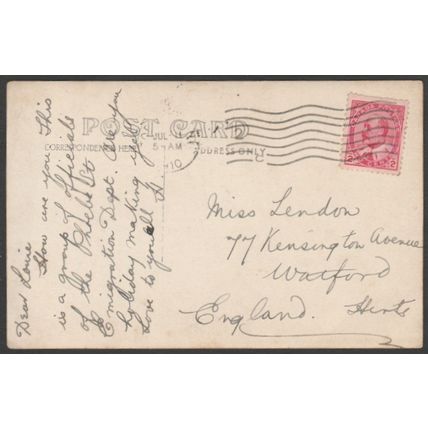 POST CARD
CORRESPONDENCE HERE
ADDRESS ONLY
JUL 11
5 AM
10
2
2
Dear Louie
How are you. This
is a group of Officials
of the
Emigration Dept. Are you
holiday making yet?
Love to you all
Miss Lendon
77 Kensington Avenue
Watford
England. Herts